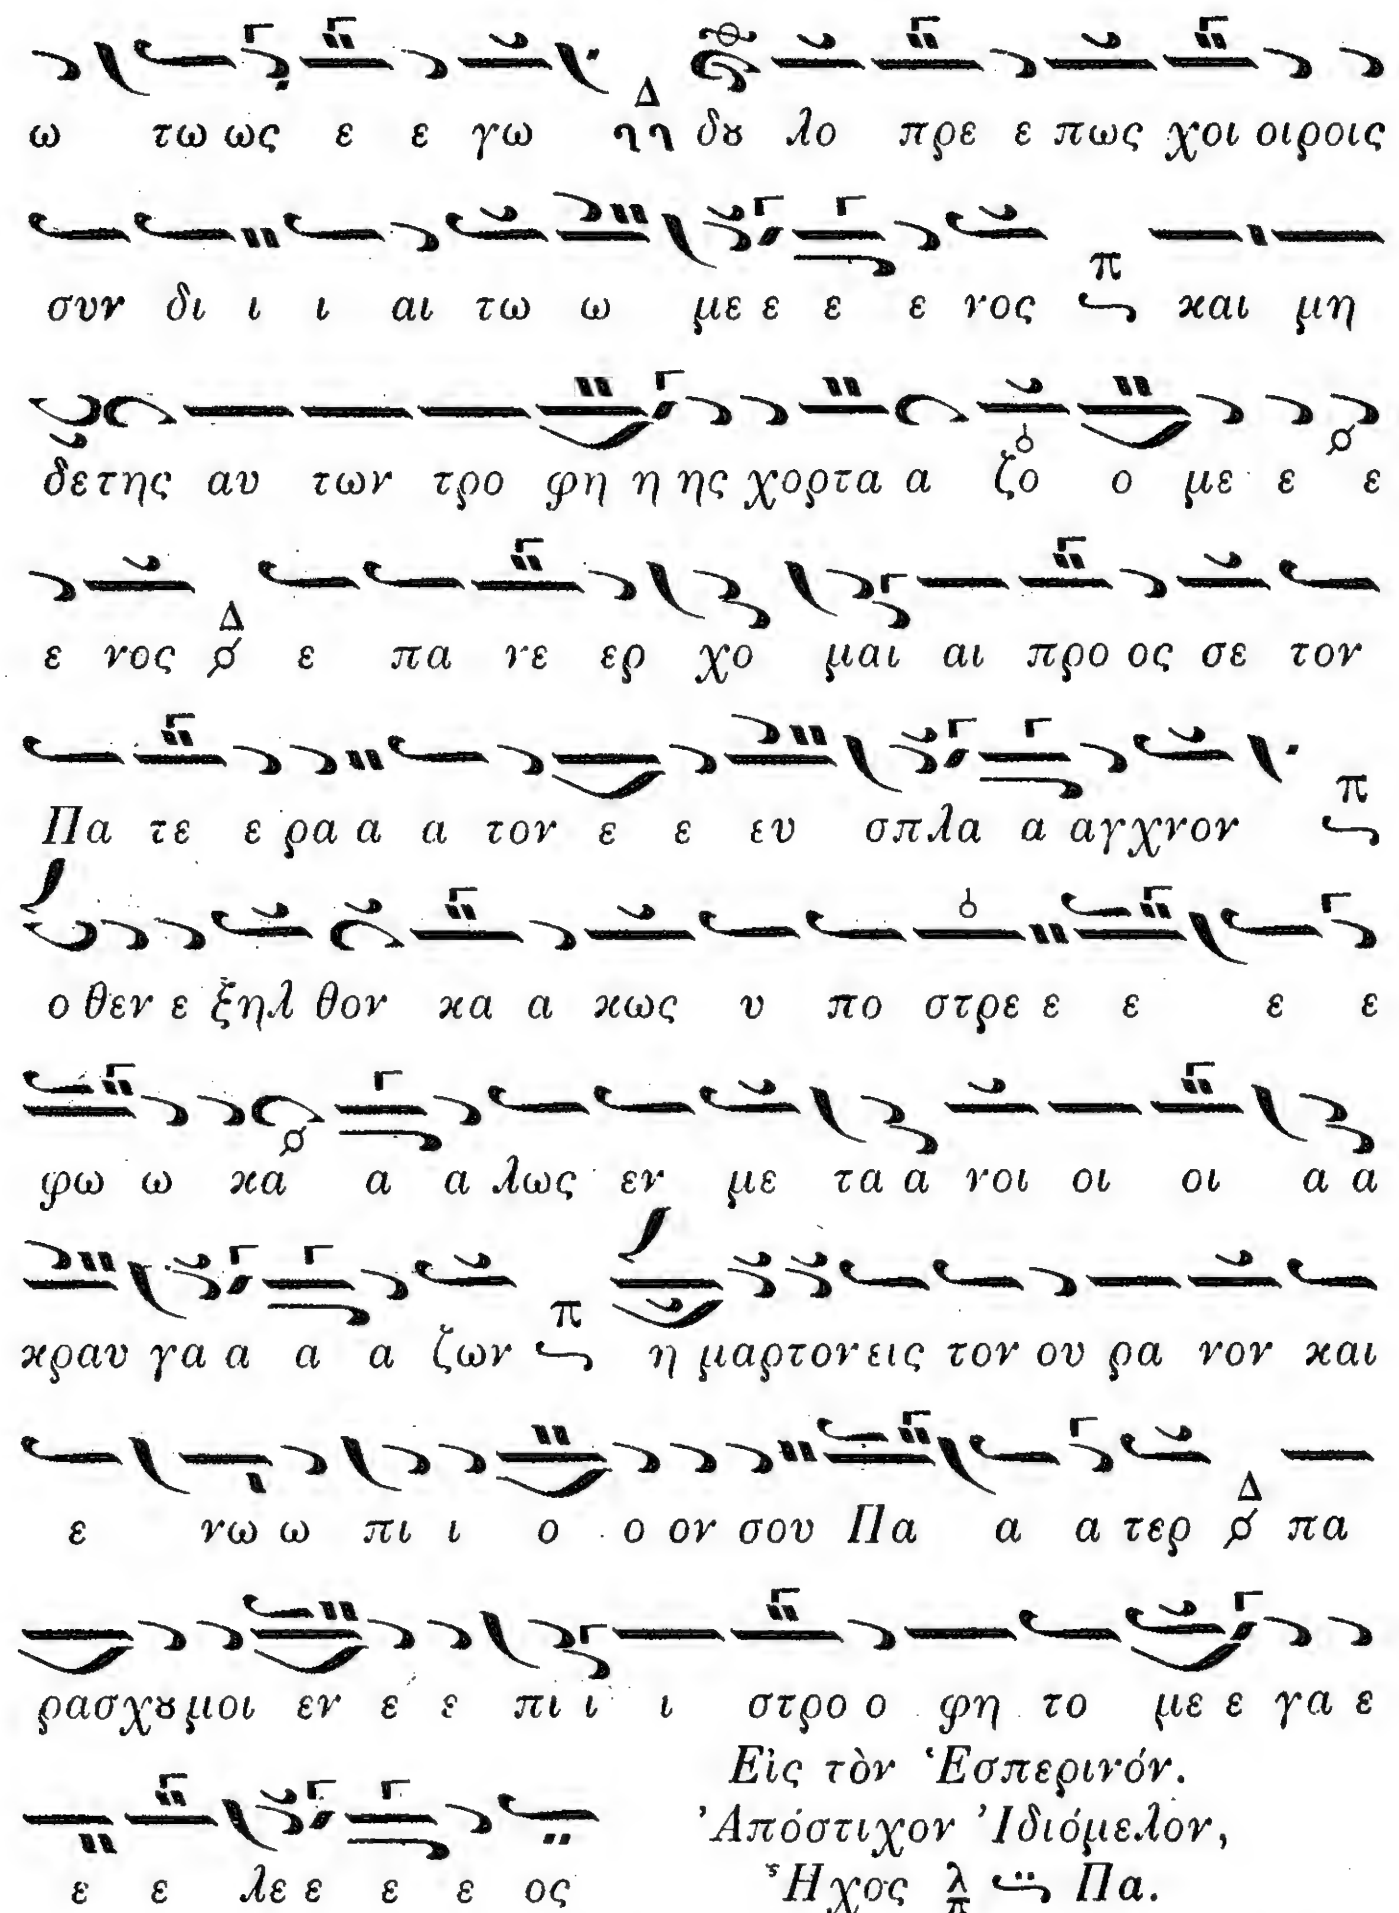 ω τω ως ε ε γω Δ ηη δȣ λο πρε ε πως χοι οιροις
συν δι ι ι αι τω ω με ε ε ε νος π και μη
δετης αυ των τρο φη η ης χορτα α ζο ο με ε ε
ε νος Δ ε πα νε ερ χο μαι αι προ ος σε τον
Πα τε ε ρα α α τον ε ε ευ σπλα α αγχνον π
ο θεν ε ξηλ θον κα α κως υ πο στρε ε ε ε ε
φω ω κα α α λως εν με τα α νοι οι οι α α
κραυ γα α α α ζων π η μαρτον εις τον ου ρα νον και
ε νω ω πι ι ο ο ον σου Πα α α τερ Δ πα
ρασχȣ μοι εν ε ε πι ι ι στρο ο φη το με ε γα ε
ε ε λε ε ε ε ος
Εἰς τὸν Ἑσπερινόν.
Ἀπόστιχον Ἰδιόμελον,
Ἦχος λ π Πα.